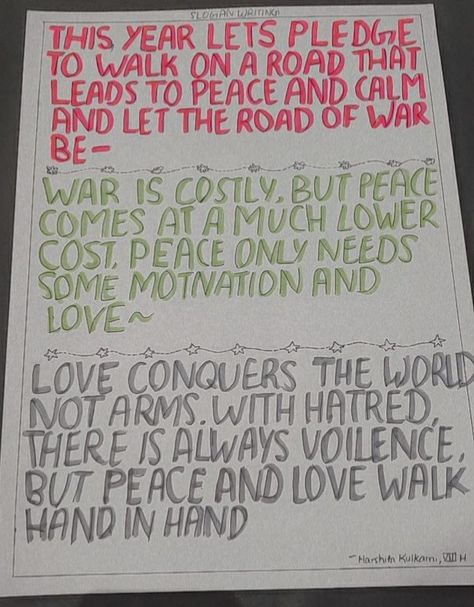 SLOGAN WRITING
THIS YEAR LETS PLEDGE
TO WALK ON A ROAD THAT
LEADS TO PEACE AND CALM
AND LET THE ROAD OF WAR
BE-
WAR IS COSTLY, BUT PEACE
COMES AT A MUCH LOWER
COST, PEACE ONLY NEEDS
SOME MOTNATION AND
LOVE~
LOVE CONQUERS THE WORLD
NOT ARMS. WITH HATRED,
THERE IS ALWAYS VOILENCE,
BUT PEACE AND LOVE WALK
HAND IN HAND
~Harshita Kulkarni, VIII H